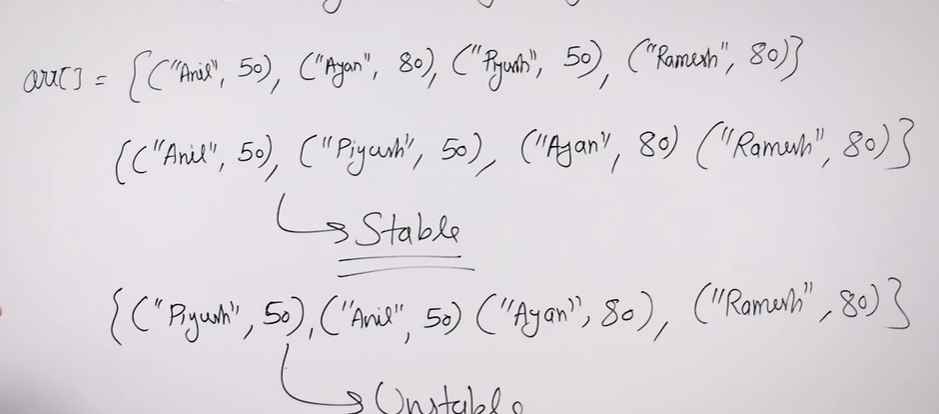 arr[] = {("Anil", 50), ("Ayan", 80), ("Piyush", 50), ("Ramesh", 80)}
{("Anil", 50), ("Piyush", 50), ("Ayan", 80) ("Ramesh", 80)}
Stable
{("Piyush", 50), ("Anil", 50) ("Ayan", 80), ("Ramesh", 80)}
Unstable